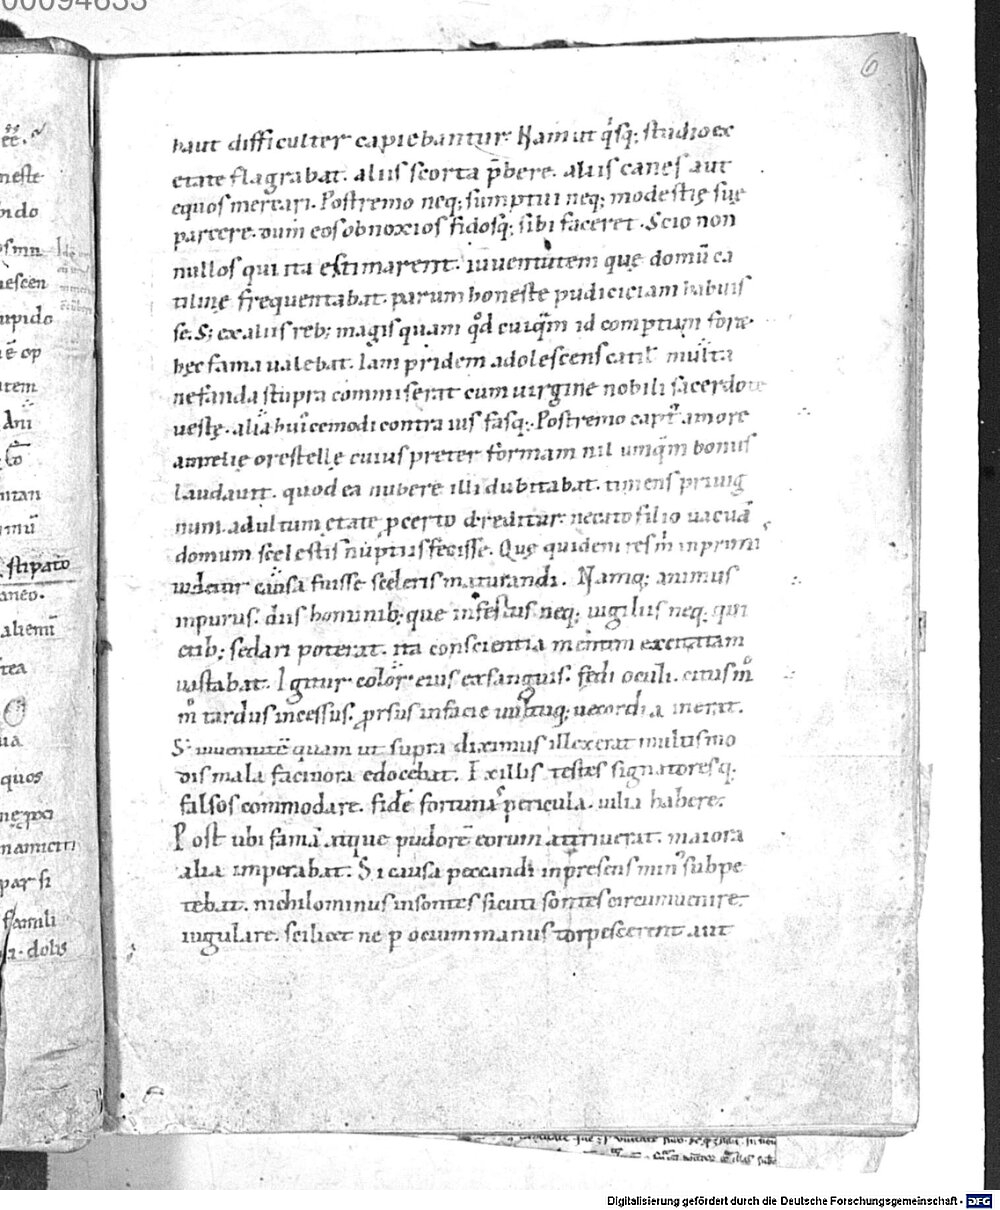 00094633
6
haut difficulter capiebantur. Nam ut q́sq; studio ex
etate flagrabat. aliis scorta p̄bere. aliis canes aut
equos mercari. Postremo neq; sumptui neq; modestię suę
parcere. dum eos obnoxios fidosq; sibi faceret. Scio non
nullos qui ita estimarent. iuuentutem que domū ca
tilinę frequentabat. parum honeste pudiciciam habuis
se. S; ex aliis reb; magis quam qd̊ cuiq̄m id comptum foret
hęc fama ualebat. Iam pridem adolescens catil multa
nefanda stupra commiserat cum uirgine nobili sacerdote
uestę. alia hui᾽cemodi contra ius fasq;. Postremo capt᾽ amore
aurelię orestellę cuius preter formam nil umq̄m bonus
laudauit. quod ea nubere illi dubitabat. timens priuig
num. adultum etate p certo creditur necato filio uacuā
domum scelestis nuptiis fecisse. Quę quidem res m̄ inprimi
uidetur causa fuisse sceleris maturandi. Namq; animus
inpurus. diis hominib; que infestus neq; uigiliis neq. qui
etib; sedari poterat. ita conscientia mentem excitatam
uastabat. Igitur color eius exsanguis. fedi oculi. citus m̊
m̊ tardus incessus. prsus in facie uultuq; uecordia inerat.
S᾽ iuuentutē quam ut supra diximus illexerat multis mo
dis mala facinora edocebat. Ex illis testes signatoresq.
falsos commodare. fidē fortunas pericula. uilia habere.
Post ubi famā atque pudorē eorum attriuerat. maiora
alia imperabat. Si causa peccandi in presens min᾽ subpe
tebat. nichilominus insontes sicuti sontes circumuenire.
iugulare. scilicet ne p ocium manus torpescerent aut
neste
pido
escen
upido
ē op
tem
Ani
stipato
aneo.
alienū
tea
quos
namciti
par si
famili
a. dolis
Digitalisierung gefördert durch die Deutsche Forschungsgemeinschaft - DFG